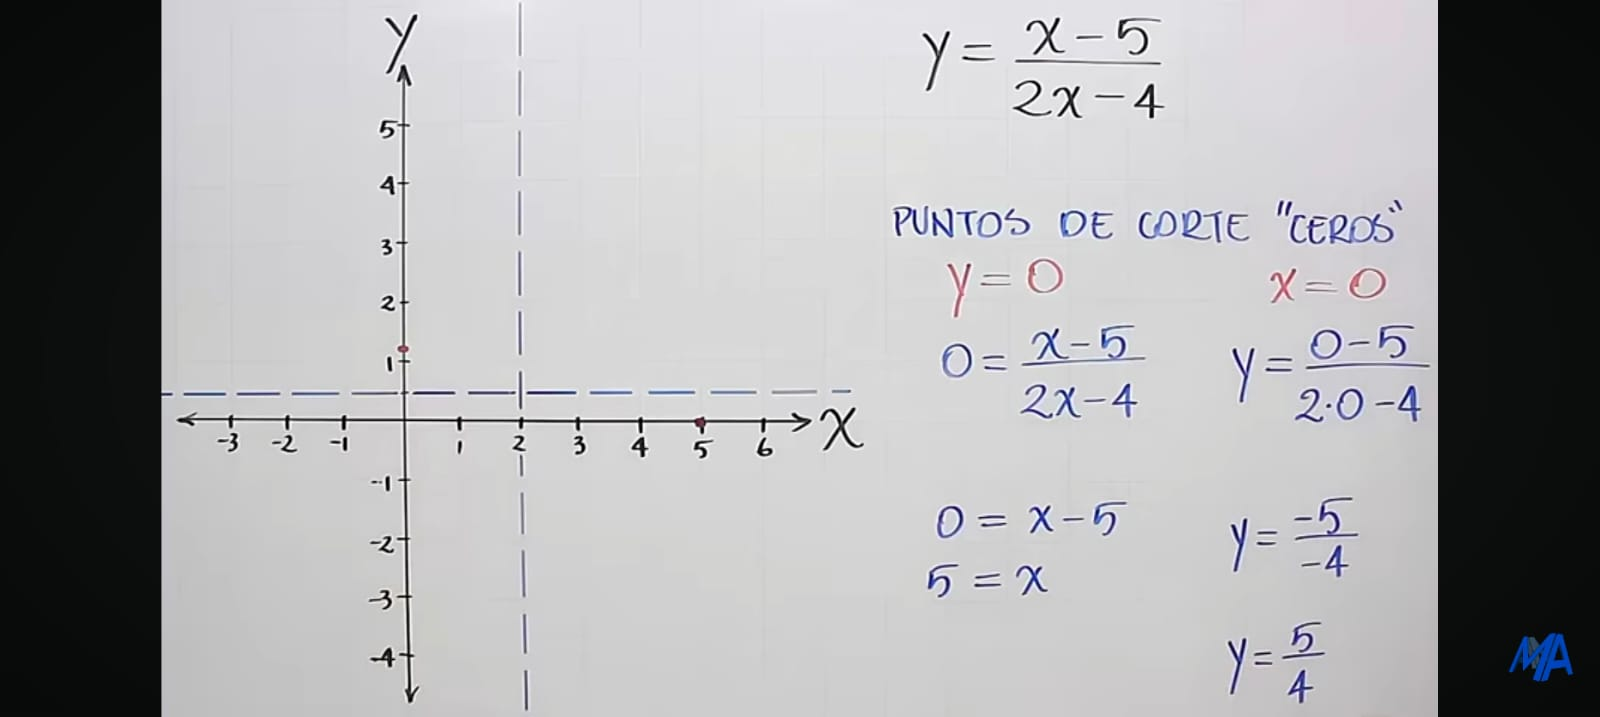 y
5
4
3
2
1
-3 -2 -1 1 2 3 4 5 6 x
-1
-2
-3
-4
y = (x - 5)/(2x - 4)
PUNTOS DE CORTE "CEROS"
y = 0
0 = (x - 5)/(2x - 4)
0 = x - 5
5 = x
x = 0
y = (0 - 5)/(2·0 - 4)
y = -5/-4
y = 5/4
MA